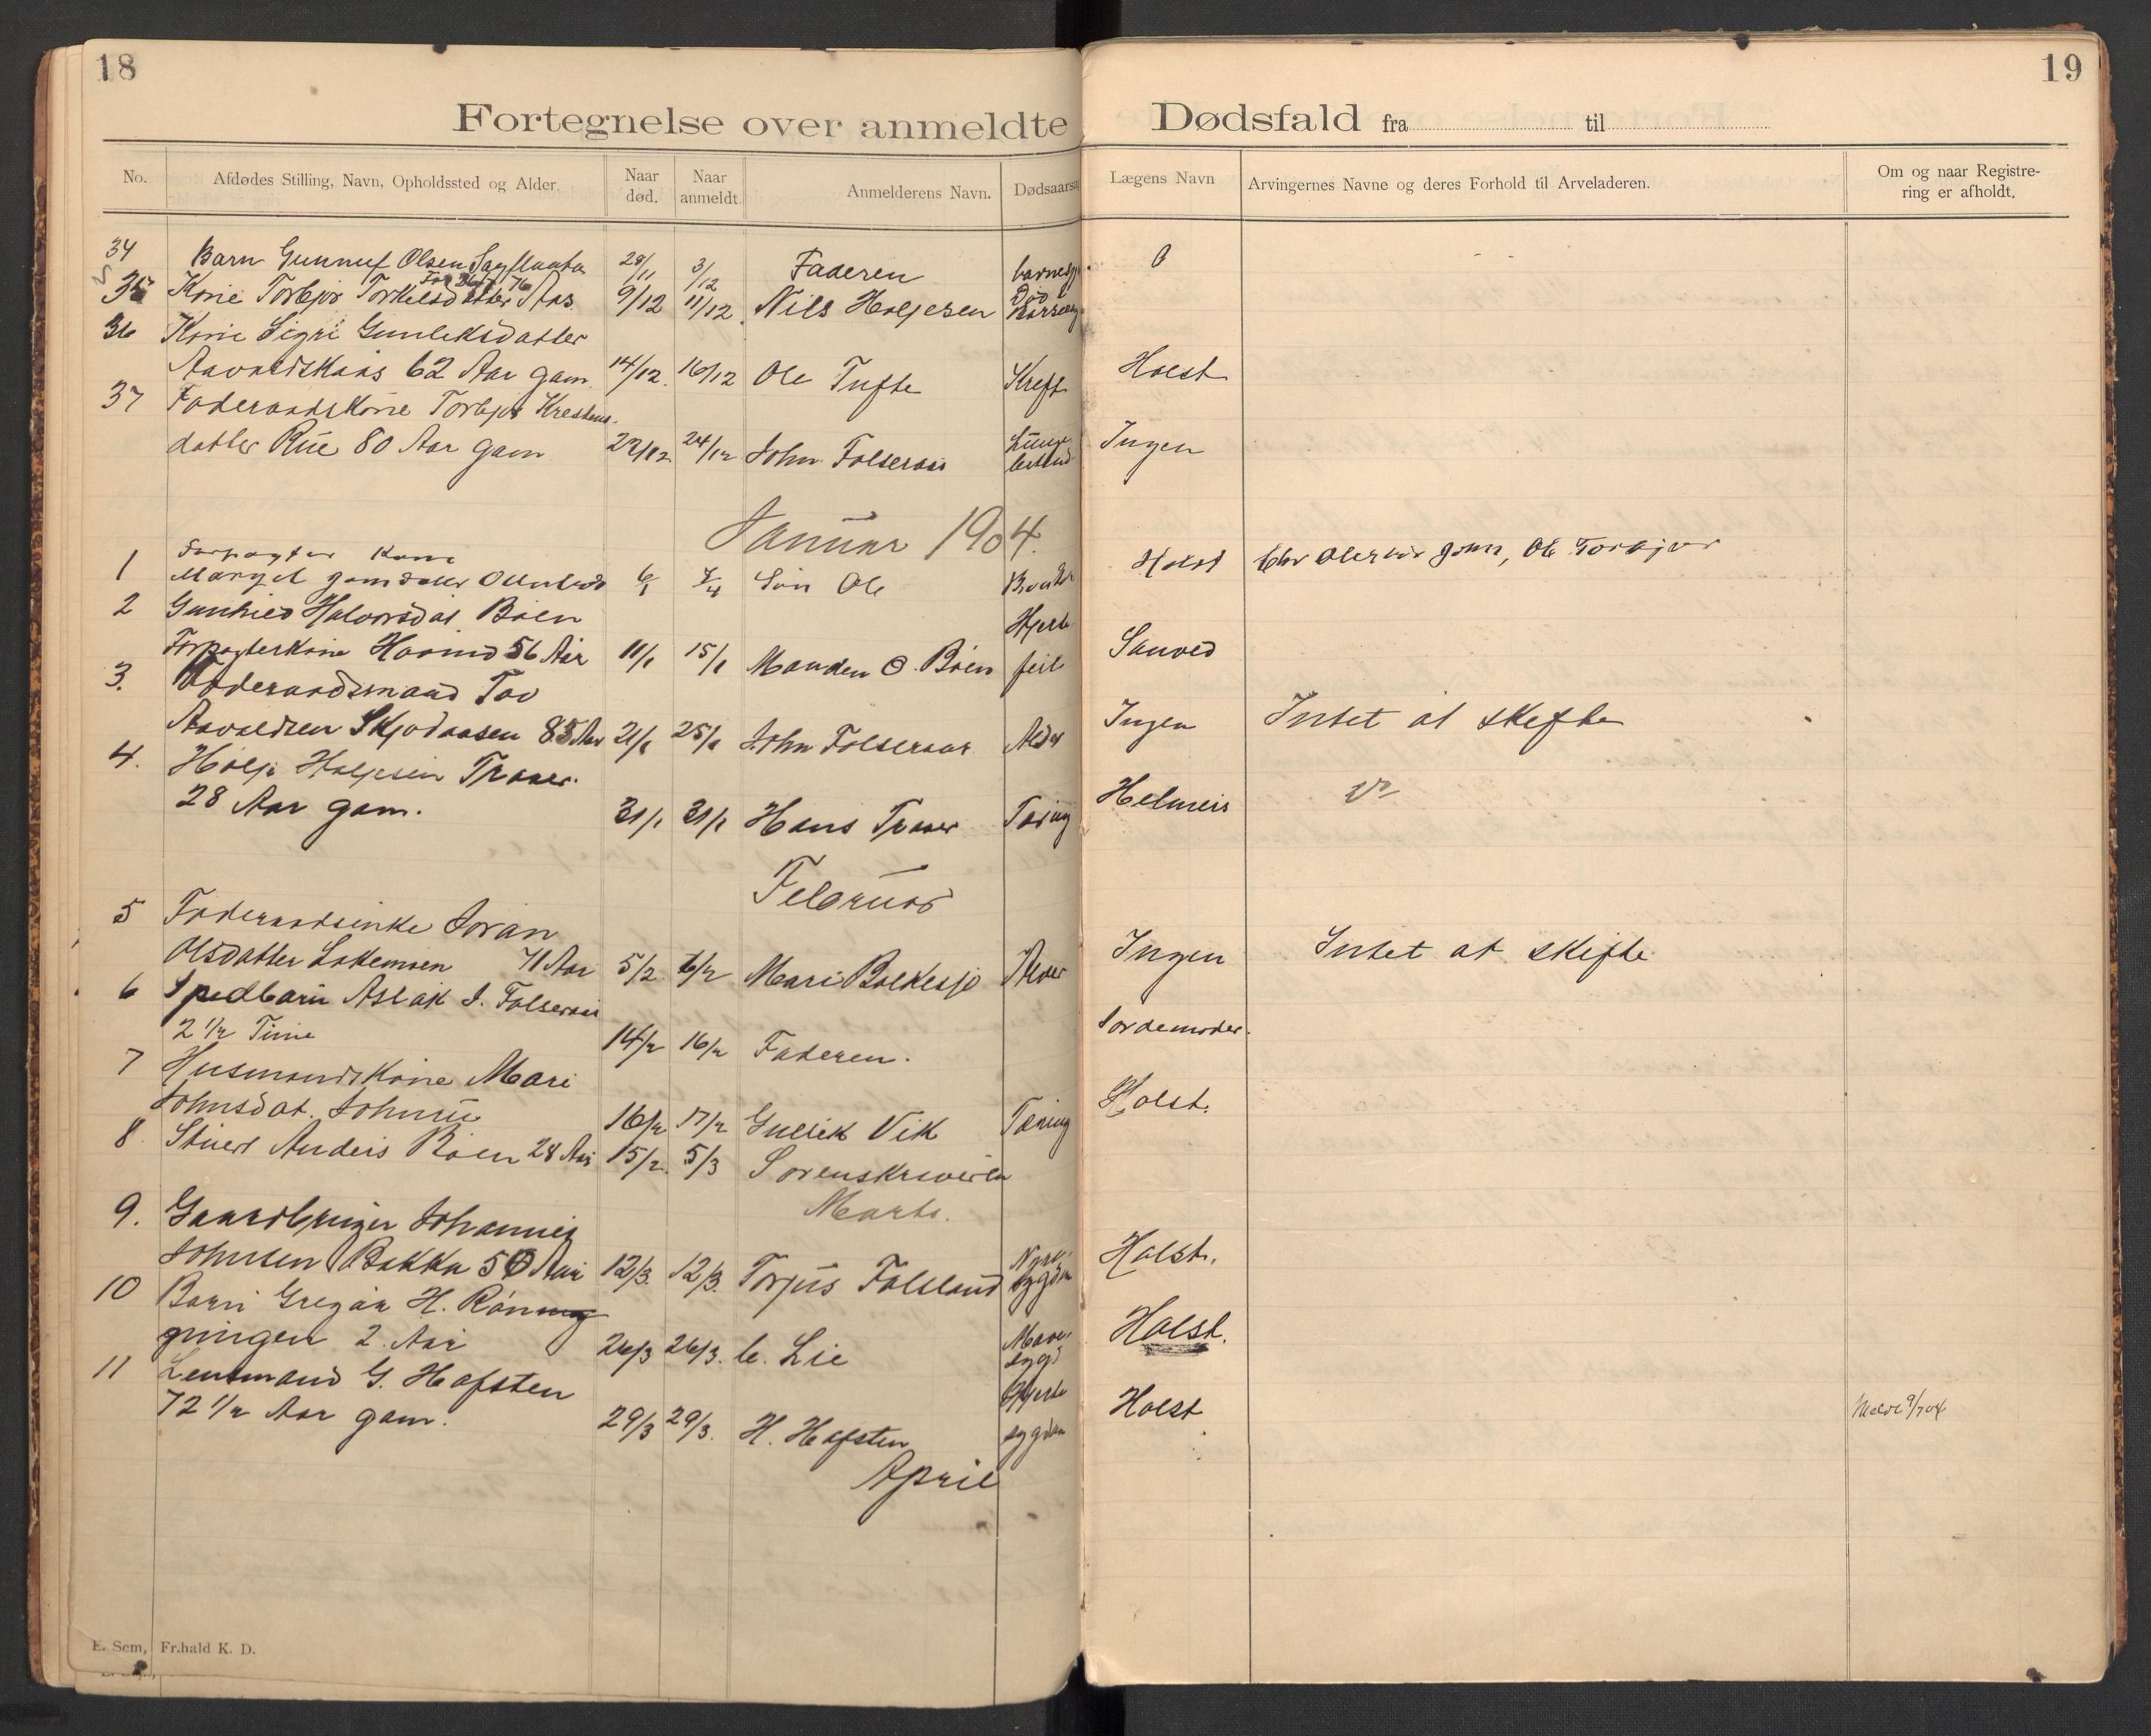 18
19
Fortegnelse over anmeldte Dødsfald fra til
No. Afdødes Stilling, Navn, Opholdssted og Alder. Naar død. Naar anmeldt. Anmelderens Navn. Dødsaarsa Lægens Navn Arvingernes Navne og deres Forhold til Arveladeren. Om og naar Registrering er afholdt.
34 Barn Gunnuf Olsen 28/11 3/12 Faderen
35 Kone Torbjør Torkilsdatter Aas 9/12 11/12 Nils Holjesen Død i Barselseng
36 Kone Sigri Gunleksdatter
62 Aar gam. 14/12. 16/12 Ole Tufte Kreft Holst
37 Foderaadskone Torbjør Krestens
datter Rue 80 Aar gam 22/12 24/12 John Folseraas Ingen
Januar 1904.
1 Forpagter Kone
Margit 6/1 Søn Ole Holst
2 Gunhild Halvorsdat Bøen Hjerte
Forpagterkone Hovind 56 Aar 11/1 15/1 Manden O. Bøen feil Sanved
3. Foderaadsmand Tov
Aavaldsen Skjodaasen 85 Aar 21/1 25/1 John Folseraas Alder Ingen Intet at skifte
4. Holje Holjesen Traaer.
28 Aar gam. 31/1 31/1 Hans Traaer Tæring Helmers
Februar
5 Foderaadsenke Joran
Olsdatter 71 Aar 5/2 6/2 Mari Bolkesjø Alder Ingen Intet at skifte
6 Spedbarn Aslak J. Folseraas
2 1/2 Time 14/2 16/2 Faderen. Jordemoder.
7 Husmandskone Mari
Johnsdat. 16/2 17/2 Gullik Vik Tæring Holst.
8 Anders Bøen 28 Aar 15/2. 5/3 Sorenskriveren
Marts.
9. Gaardbruger Johannes
Johnsen Bakka 50 Aar 12/3. 12/3. Torjus Folseland Nyresygdom Holst.
10 Barn Gregar H. Røn
gningen 2. Aar 26/3 26/3. C. Lie Mavesygd Holst.
11 Lensmand G. Hafsten Hjerte
72 1/2 Aar gam. 29/3 29/3. H. Hafsten sygdom Holst Meldt 9/7 04
April
E. Sem, Fr.hald K. D.